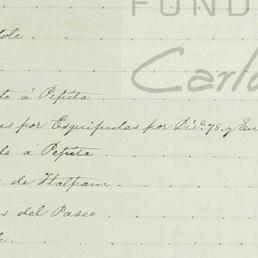 FUND
ole.
Carlo
to á Pepita
as por Esquipulas por Dic.e 78. y En
do á Pepita
de Tlalpam
s del Paseo